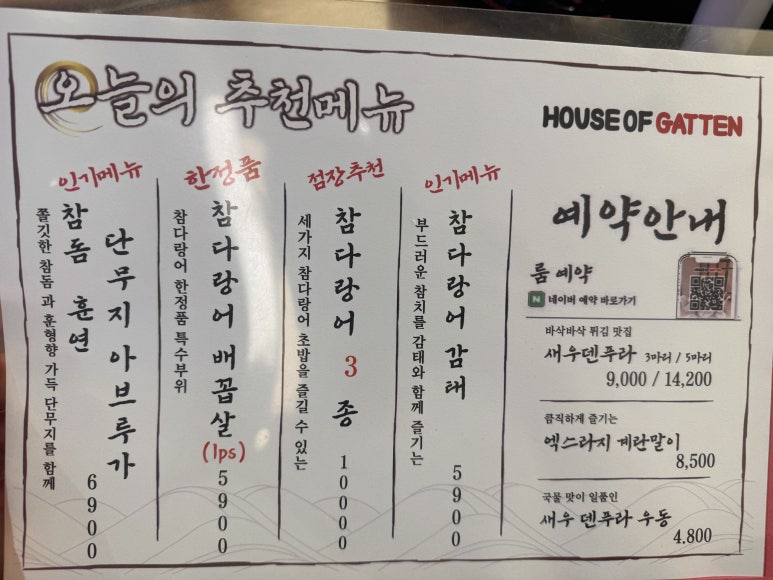 오늘의 추천메뉴
HOUSE OF GATTEN
인기메뉴
참돔 훈연
단무지 아브루가
쫄깃한 참돔 과 훈형향 가득 단무지를 함께
6900
한정품
참다랑어 배꼽살
(1ps)
참다랑어 한정품 특수부위
5900
점장추천
참다랑어 3종
세가지 참다랑어 초밥을 즐길 수 있는
10000
인기메뉴
참다랑어 감태
부드러운 참치를 감태와 함께 즐기는
5900
예약안내
룸 예약
N 네이버 예약 바로가기
바삭바삭 튀김 맛집
새우덴푸라 3마리 / 5마리
9,000 / 14,200
큼직하게 즐기는
엑스라지 계란말이
8,500
국물 맛이 일품인
새우 덴푸라 우동
4.800